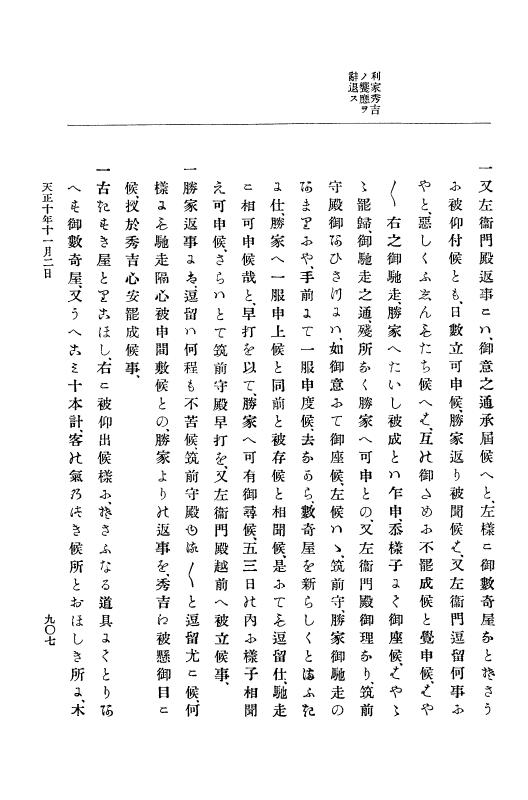 利家秀吉
ノ饗應ヲ
辭退ス
一又左衞門殿返事ニハ、御意之通承屆候へと、左樣ニ御數奇屋なときさう
ニ被仰付候とも、日數立可申候、勝家返り被聞候も、又左衞門逗留何事ニ
やと、惡しくふしんもたち候へも、互の御ためニ不罷成候と覺申候、もや
〱右之御馳走、勝家へたいし被成とハ乍申、忝樣子よく御座候、もやゝ
ゝ罷歸、御馳走之通、殘所なく勝家へ可申との、又左衞門殿御理なり、筑前
守殿御なひさけよハ、如御意ニて御座候、左候ハゝ、筑前守、勝家御馳走の
なまとニや、手前よて一服申度候、去なから、數奇屋を新らしくとほふた
よ仕、勝家へ一服申上候と同前と被存候と相聞候、是ニても逗留仕、馳走
ニ相可申候哉と、早打を以て、勝家へ可有御尋候、五三日の内ニ樣子相聞
え可申候、さらハとて筑前守殿早打を、又左衞門殿越前へ被立候事、
一勝家返事よも、逗留ハ何程も不苦候、筑前守殿ゆほ〱と逗留尤ニ候、何
樣よも馳走隔心被申間敷候との、勝家よりの返事を、秀吉ゟ被懸御目ニ
候、扨於秀吉心安罷成候事、
一古たもき屋とをこほし、右ニ被仰出候樣ニ、きさふなる道具よくとりな
へも御數奇屋、又うへこミ十本計、客の氣乃はき候所とおほしき所よ、木
天正十年十一月二日
九〇七